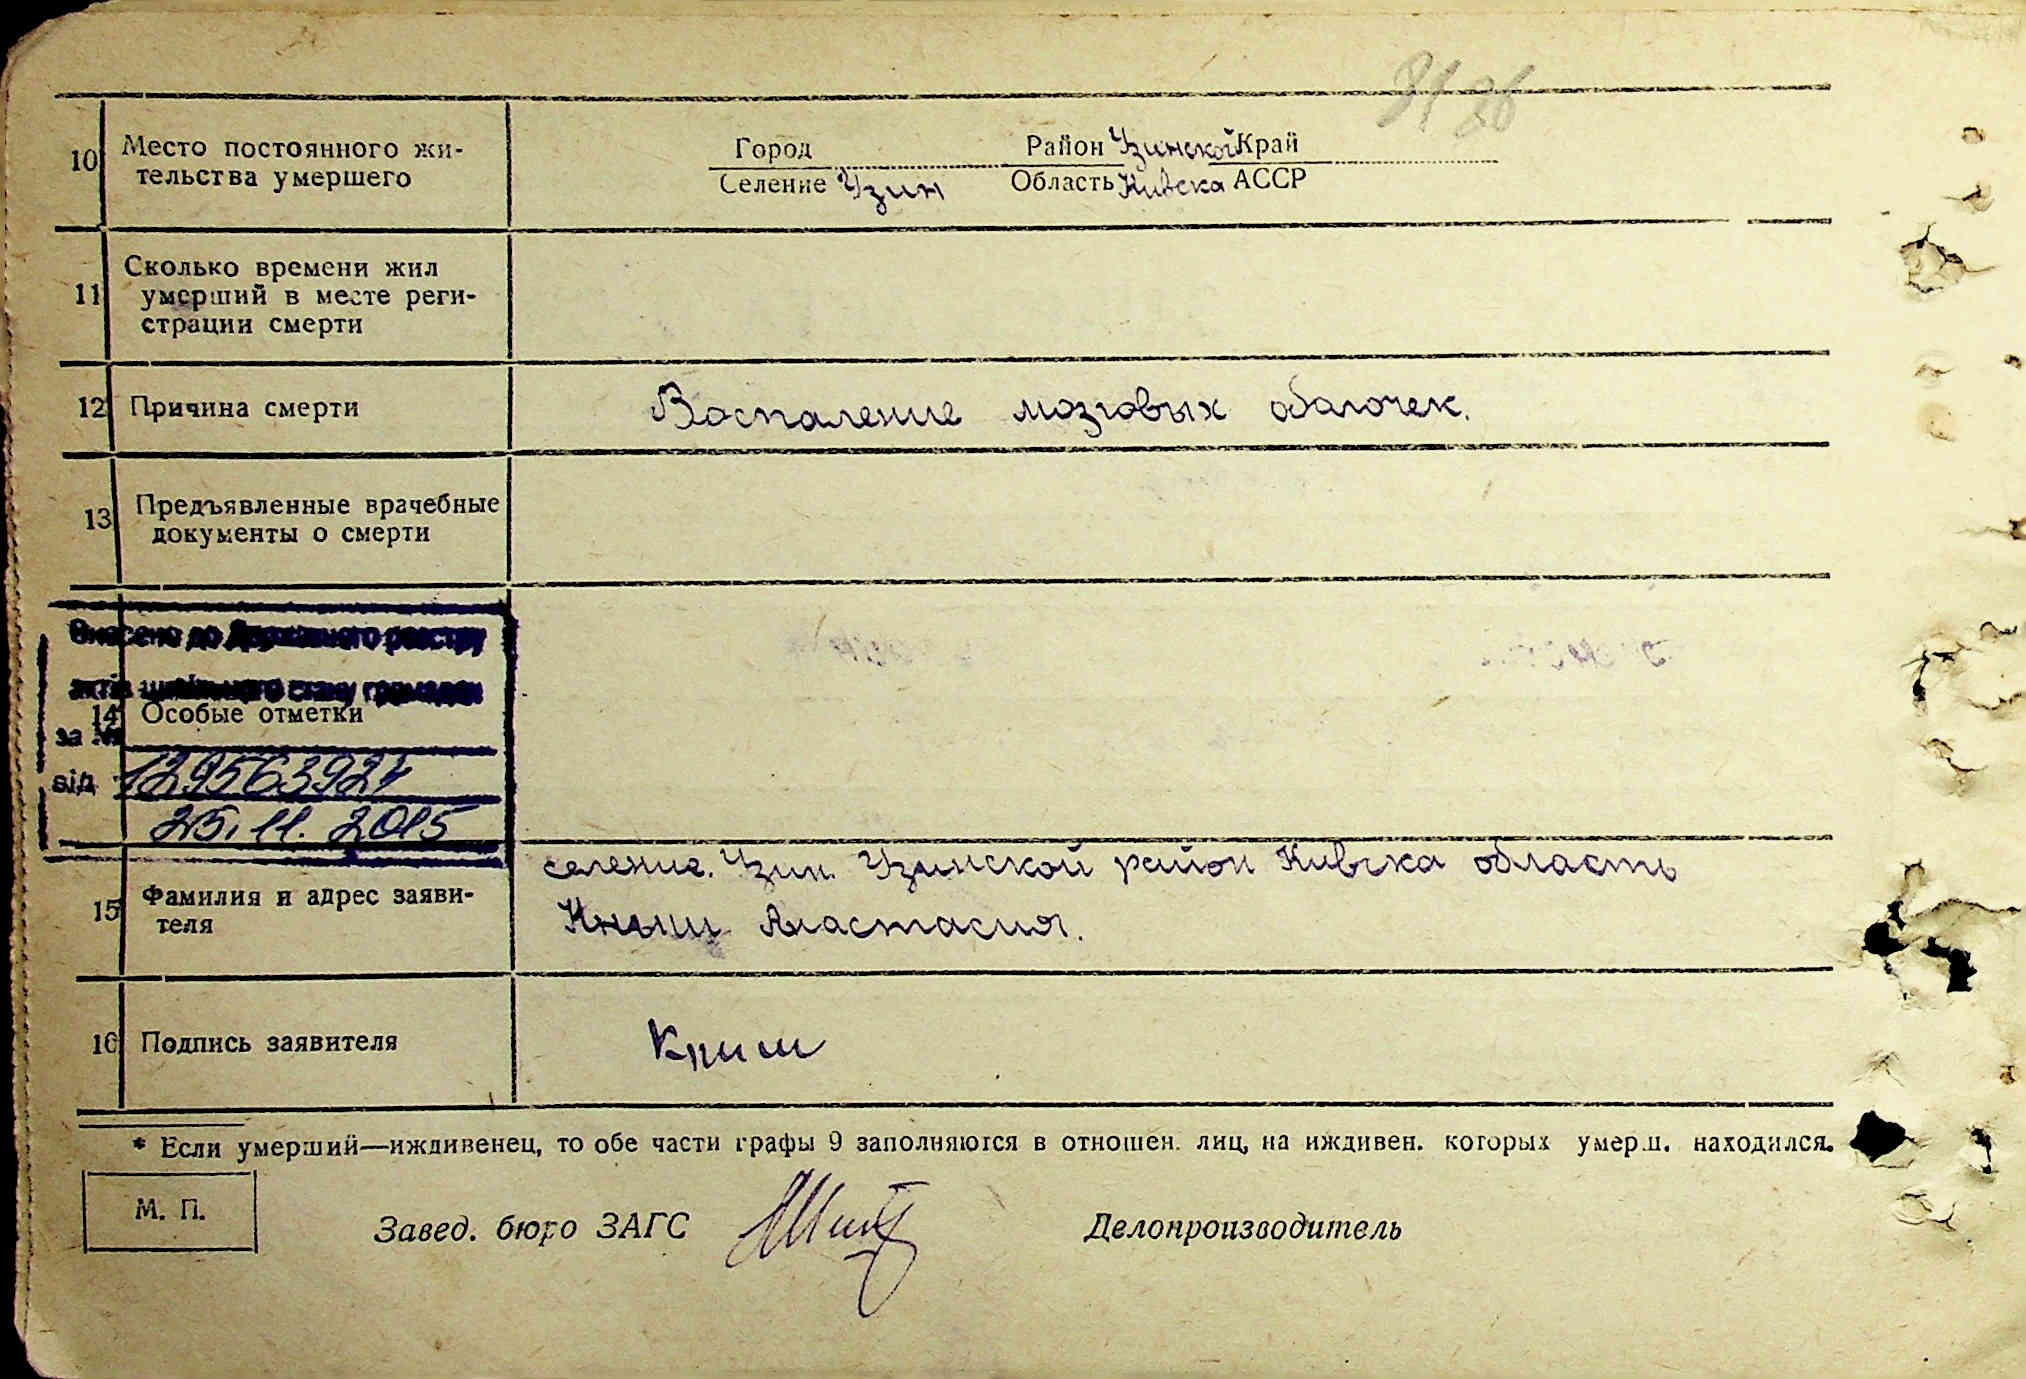 31 26
10 Место постоянного жи-
тельства умершего
Город Район Узинской Край
Селение Узин Область Кивска АССР
11 Сколько времени жил
умерший в месте реги-
страции смерти
12 Причина смерти Воспаление мозговых оболочек.
13 Предъявленные врачебные
документы о смерти
Внесено до Державного реєстру
актів цивільного стану громадян
14 Особые отметки
за №
від 129563924
25.11.2015
селение. Узин. Узинской район Кивска область
15 Фамилия и адрес заяви-
теля
Анастасия.
16 Подпись заявителя Книш
* Если умерший—иждивенец, то обе части графы 9 заполняются в отношен. лиц, на иждивен. которых умерш. находился.
М. П.
Завед. бюро ЗАГС Делопроизводитель